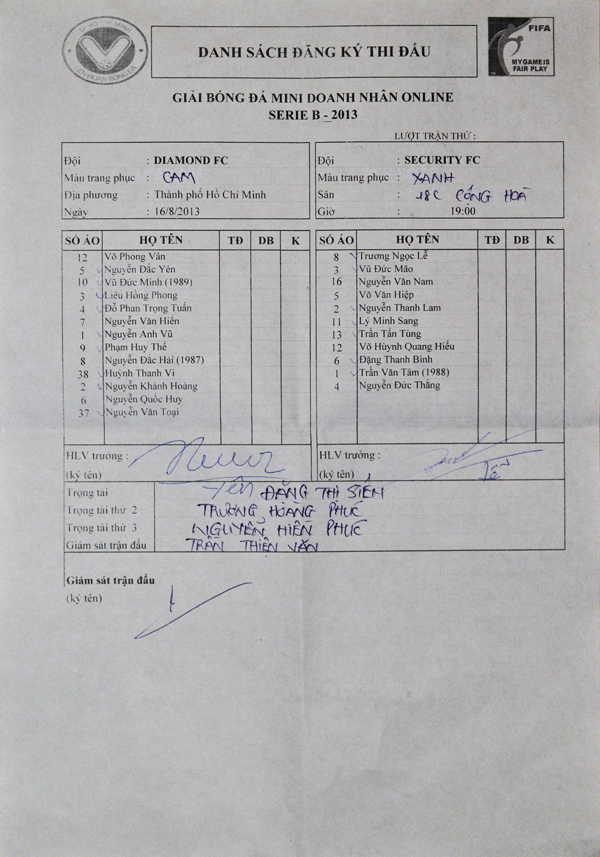 TP. HỒ CHÍ MINH
LIÊN ĐOÀN BÓNG ĐÁ
DANH SÁCH ĐĂNG KÝ THI ĐẤU
FIFA
MY GAME IS
FAIR PLAY
GIẢI BÓNG ĐÁ MINI DOANH NHÂN ONLINE
SERIE B - 2013
LƯỢT TRẬN THỨ :
Đội : DIAMOND FC
Màu trang phục : CAM
Địa phương : Thành phố Hồ Chí Minh
Ngày : 16/8/2013
Đội : SECURITY FC
Màu trang phục : XANH
Sân : 18C CỘNG HOÀ
Giờ : 19:00
SỐ ÁO HỌ TÊN TĐ DB K
12 Võ Phong Vân
5 Nguyễn Đắc Yên
10 Vũ Đức Minh (1989)
3 Liêu Hồng Phong
4 Đỗ Phan Trọng Tuấn
7 Nguyễn Văn Hiên
1 Nguyễn Anh Vũ
9 Phạm Huy Thế
8 Nguyễn Đắc Hải (1987)
38 Huỳnh Thanh Vi
2 Nguyễn Khánh Hoàng
6 Nguyễn Quốc Huy
37 Nguyễn Văn Toại
SỐ ÁO HỌ TÊN TĐ DB K
8 Trương Ngọc Lễ
3 Vũ Đức Mão
16 Nguyễn Văn Nam
5 Võ Văn Hiệp
2 Nguyễn Thanh Lam
11 Lý Minh Sang
13 Trần Tấn Tùng
12 Võ Huỳnh Quang Hiếu
6 Đặng Thanh Bình
1 Trần Văn Tâm (1988)
4 Nguyễn Đức Thắng
HLV trưởng :
(ký tên)
HLV trưởng :
(ký tên)
Trọng tài ĐẶNG THỊ SIẾN
Trọng tài thứ 2 TRƯƠNG HOÀNG PHÚC
Trọng tài thứ 3 NGUYỄN HIỀN PHÚC
Giám sát trận đấu TRẦN THIÊN VĂN
Giám sát trận đấu
(ký tên)